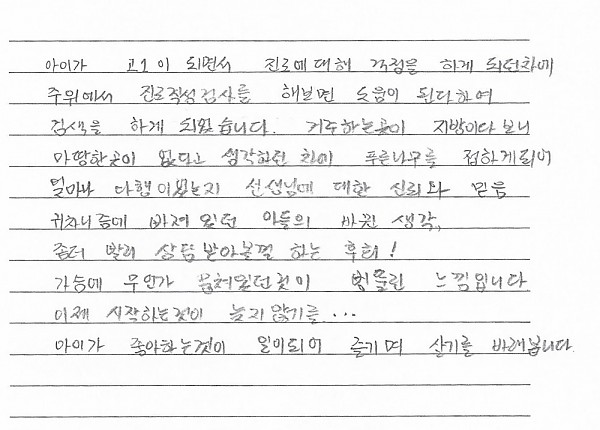 아이가 고1이 되면서 진로에대해 걱정을 하게 되던차에
주위에서 진로적성검사를 해보면 도움이 된다하여
검색을 하게 되었습니다. 거주하는곳이 지방이다보니
마땅한곳이 없다고 생각하던 차에 푸른나무를 접하게되어
얼마나 다행이었는지 선생님에 대한 신뢰와 믿음
귀차니즘에 빠져 있던 아들의 바뀐 생각,
좀더 빨리 상담받아볼껄 하는 후회!
가슴에 무언가 뭉쳐있던것이 뻥뚤린 느낌입니다
이제 시작하는것이 늦지 않기를 ...
아이가 좋아하는것이 일이되어 즐기며 살기를 바래봅니다.